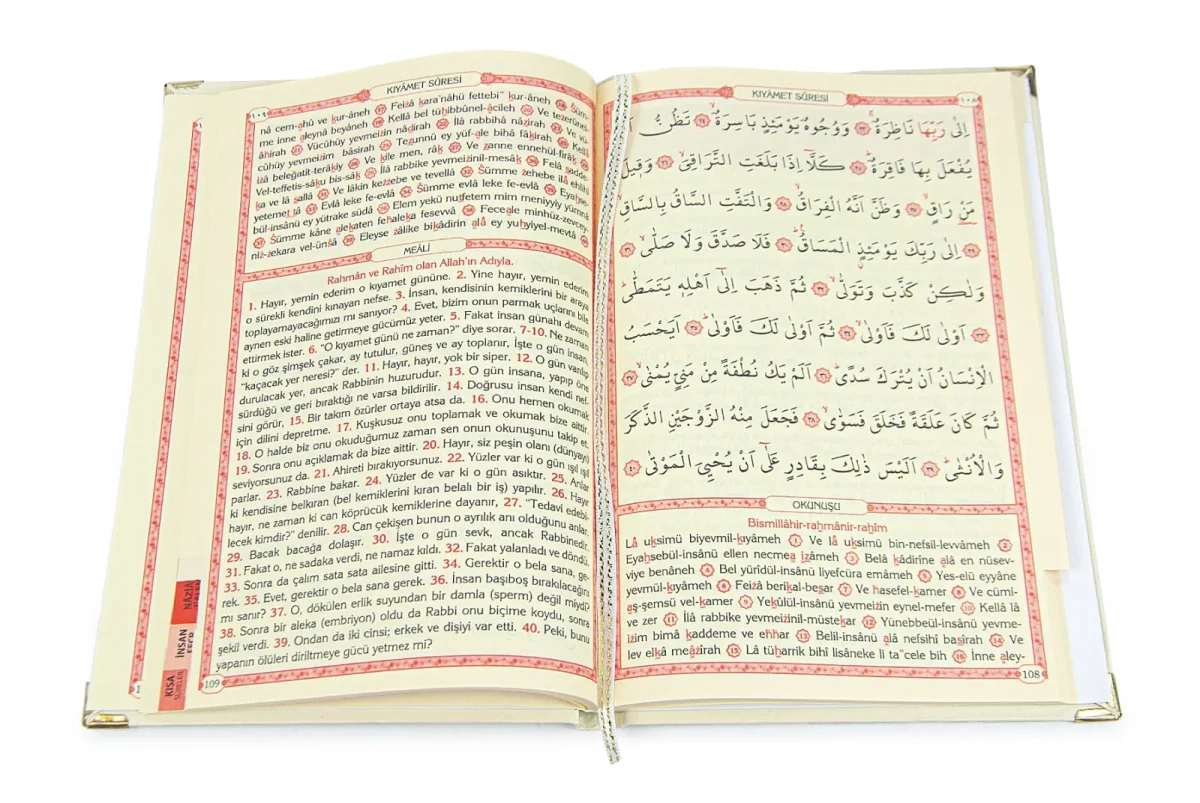 KIYÂMET SÛRESİ
١٠٨
اِلٰى رَبِّهَا نَاظِرَةٌۚ ﴿٢٣﴾ وَوُجُوهٌ يَوْمَئِذٍ بَاسِرَةٌۙ ﴿٢٤﴾ تَظُنُّ اَنْ
يُفْعَلَ بِهَا فَاقِرَةٌۜ ﴿٢٥﴾ كَلَّٓا اِذَا بَلَغَتِ التَّرَاقِيَۙ ﴿٢٦﴾ وَقٖيلَ
مَنْ رَاقٍۙ ﴿٢٧﴾ وَظَنَّ اَنَّهُ الْفِرَاقُۙ ﴿٢٨﴾ وَالْتَفَّتِ السَّاقُ بِالسَّاقِۙ
﴿٢٩﴾ اِلٰى رَبِّكَ يَوْمَئِذٍ الْمَسَاقُۜ ﴿٣٠﴾ فَلَا صَدَّقَ وَلَا صَلّٰىۙ ﴿٣١﴾
وَلٰكِنْ كَذَّبَ وَتَوَلّٰىۙ ﴿٣٢﴾ ثُمَّ ذَهَبَ اِلٰٓى اَهْلِهٖ يَتَمَطّٰىۜ
﴿٣٣﴾ اَوْلٰى لَكَ فَاَوْلٰىۙ ﴿٣٤﴾ ثُمَّ اَوْلٰى لَكَ فَاَوْلٰىۜ ﴿٣٥﴾ اَيَحْسَبُ
الْاِنْسَانُ اَنْ يُتْرَكَ سُدًىۜ ﴿٣٦﴾ اَلَمْ يَكُ نُطْفَةً مِنْ مَنِيٍّ يُمْنٰىۙ ﴿٣٧﴾
ثُمَّ كَانَ عَلَقَةً فَخَلَقَ فَسَوّٰىۙ ﴿٣٨﴾ فَجَعَلَ مِنْهُ الزَّوْجَيْنِ الذَّكَرَ
وَالْاُنْثٰىۜ ﴿٣٩﴾ اَلَيْسَ ذٰلِكَ بِقَادِرٍ عَلٰٓى اَنْ يُحْيِيَ الْمَوْتٰى ﴿٤٠﴾
OKUNUŞU
Bismillâhir-rahmânir-rahîm
Lâ uksimü biyevmil-kıyâmeh 1 Ve lâ uksimü bin-nefsil-levvâmeh 2
Eyahsebül-insânü ellen necmea izâmeh 3 Belâ kâdirîne alâ en nüsev-
viye benâneh 4 Bel yürîdül-insânü liyefcüra emâmeh 5 Yes-elü eyyâne
yevmül-kıyâmeh 6 Feizâ berikal-besar 7 Ve hasefel-kamer 8 Ve cümi-
aş-şemsü vel-kamer 9 Yekûlül-insânü yevmeizin eynel-mefer 10 Kellâ lâ
ve zer 11 İlâ rabbike yevmeizinil-müstekar 12 Yünebbeül-insânü yevme-
izim bimâ kaddeme ve ehhar 13 Belil-insânü alâ nefsihî basîrah 14 Ve
lev elkâ meâzîrah 15 Lâ tüharrik bihî lisâneke li ta"cele bih 16 İnne aley-
108
١٠٩
KIYÂMET SÛRESİ
nâ cem-ahû ve kur-âneh 17 Feizâ kara'nâhü fettebi" kur-âneh 18 Süm-
me inne aleynâ beyâneh 19 Kellâ bel tühibbûnel-âcileh 20 Ve tezerûnel-
âhirah 21 Vücûhüy yevmeizin nâdirah 22 İlâ rabbihâ nâzirah 23 Ve vü-
cûhüy yevmeizim bâsirah 24 Tezunnü ey yüf-ale bihâ fâkirah 25 Kellâ
izâ beleğatit-terâkıy 26 Ve kîle men, râk 27 Ve zanne ennehül-firâk 28
Vel-teffetis-sâku bis-sâk 29 İlâ rabbike yevmeizinil-mesâk 30 Felâ sadde-
ka ve lâ sallâ 31 Ve lâkin kezzebe ve tevellâ 32 Sümme zehebe ilâ ehlihî
yetemettâ 33 Evlâ leke fe-evlâ 34 Sümme evlâ leke fe-evlâ 35 Eyahse-
bül-insânü ey yütrake südâ 36 Elem yekü nutfetem mim meniyyiy yümnâ
37 Sümme kâne alekaten fehaleka fesevvâ 38 Feceale minhüz-zevcey-
niz-zekara vel-ünsâ 39 Eleyse zâlike bikâdirin alâ ey yuhyiyel-mevtâ 40
MEÂLİ
Rahmân ve Rahîm olan Allah'ın Adıyla.
1. Hayır, yemin ederim o kıyamet gününe. 2. Yine hayır, yemin ederim
o sürekli kendini kınayan nefse. 3. İnsan, kendisinin kemiklerini bir araya
toplayamayacağımızı mı sanıyor? 4. Evet, bizim onun parmak uçlarını bile
aynen eski haline getirmeye gücümüz yeter. 5. Fakat insan günahı devam
ettirmek ister. 6. "O kıyamet günü ne zaman?" diye sorar. 7-10. Ne zaman
ki o göz şimşek çakar, ay tutulur, güneş ve ay toplanır, İşte o gün insan,
"kaçacak yer neresi?" der. 11. Hayır, hayır, yok bir siper. 12. O gün varılıp
durulacak yer, ancak Rabbinin huzurudur. 13. O gün insana, yapıp öne
sürdüğü ve geri bıraktığı ne varsa bildirilir. 14. Doğrusu insan kendi nef-
sini görür, 15. Bir takım özürler ortaya atsa da. 16. Onu hemen okumak
için dilini depretme. 17. Kuşkusuz onu toplamak ve okumak bize aittir.
18. O halde biz onu okuduğumuz zaman sen onun okunuşunu takip et.
19. Sonra onu açıklamak da bize aittir. 20. Hayır, siz peşin olanı (dünyayı)
seviyorsunuz da. 21. Ahireti bırakıyorsunuz. 22. Yüzler var ki o gün ışıl ışıl
parlar. 23. Rabbine bakar. 24. Yüzler de var ki o gün asıktır. 25. Anlar
ki kendisine belkıran (bel kemiklerini kıran belalı bir iş) yapılır. 26. Hayır
hayır, ne zaman ki can köprücük kemiklerine dayanır, 27. "Tedavi edebi-
lecek kimdir?" denilir. 28. Can çekişen bunun o ayrılık anı olduğunu anlar.
29. Bacak bacağa dolaşır. 30. İşte o gün sevk, ancak Rabbinedir.
31. Fakat o, ne sadaka verdi, ne namaz kıldı. 32. Fakat yalanladı ve döndü.
33. Sonra da çalım sata sata ailesine gitti. 34. Gerektir o bela sana, ge-
rek. 35. Evet, gerektir o bela sana gerek. 36. İnsan başıboş bırakılacağını
mı sanır? 37. O, dökülen erlik suyundan bir damla (sperm) değil miydi?
38. Sonra bir aleka (embriyon) oldu da Rabbi onu biçime koydu, sonra
şekil verdi. 39. Ondan da iki cinsi; erkek ve dişiyi var etti. 40. Peki, bunu
yapanın ölüleri diriltmeye gücü yetmez mi?
109
NÂZİÂ
İNSAN
FECR
KISA
SÛRELER